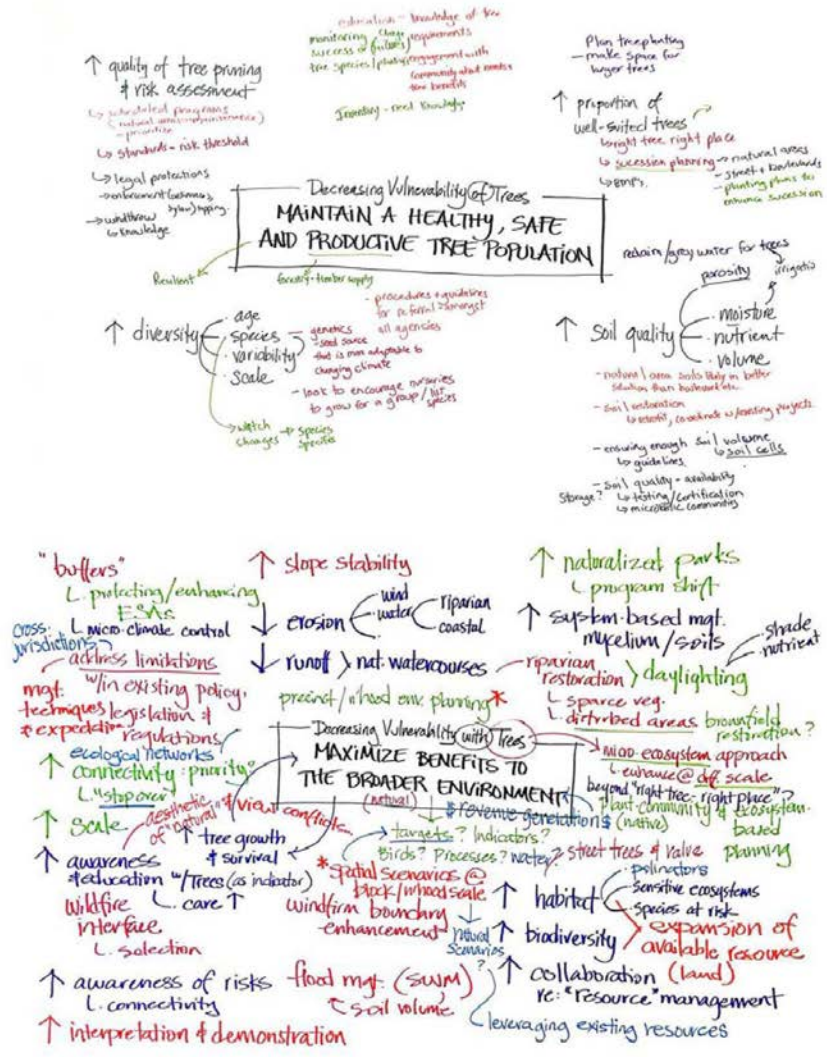 education - knowledge of tree
requirements
monitoring change
success or failures
tree species/planting
engagement with
community about needs
tree benefits
Inventory - need knowledge
Plan tree planting
- make space for
larger trees
↑ quality of tree pruning
& risk assessment
↳ scheduled programs
- prioritize
↳ standards - risk threshold
↳ legal protections
→ windthrow
↳ knowledge
↑ proportion of
well-suited trees
↳ right tree right place
↳ sucession planning → natural areas
- street & boulevards
- planting plans to
enhance sucession
↳ BMPs.
Decreasing Vulnerability of Trees
MAINTAIN A HEALTHY, SAFE
AND PRODUCTIVE TREE POPULATION
Resilient
forestry - timber supply
reclaim/grey water for trees
irrigatio
porosity
↑ diversity
· age
· species
· variability
· scale
- genetics
- seed source
that is more adaptable to
changing climate
- procedures & guidelines
for referral amongst
all agencies
- look to encourage nurseries
to grow for a group/list
species
→ watch
changes → species
specific
↑ Soil quality
· moisture
· nutrient
· volume
- natural area soils likely in better
- soil restoration
↳ retrofit, coordinate w/existing projects
- ensuring enough soil volume
↳ soil cells
↳ guidelines
- soil quality - availability
storage? ↳ testing/certification
↳ microbatic communities
"buffers"
↳ protecting/enhancing
ESAs
↳ micro-climate control
cross-
jurisdictions
address limitations
w/in existing policy,
legislation &
regulations
mgt.
techniques
& expedition
ecological networks
↑ connectivity: priority"
↳ "stop over"
↑ scale
aesthetic
of "natural"
* view conflicts...
↑ tree growth
& survival
↑ awareness
& education w/Trees (as indicator)
↳ care ↑
wildfire
interface
↳ selection
↑ awareness of risks
↳ connectivity
↑ interpretation & demonstration
↑ slope stability
↓ erosion
wind
water
riparian
coastal
↓ runoff > nat. watercourses
precinct/n'hood env. planning *
Decreasing Vulnerability with Trees
MAXIMIZE BENEFITS TO
THE BROADER ENVIRONMENT
(natural)
$ revenue generation $
targets? Indicators?
Birds? Processes? Water?
* spatial scenarios @
block/n'hood scale
windfirm boundary
enhancement
natural
scenarios
?
flood mgt. (SWM)
soil volume
↑ naturalized parks
↳ program shift
↑ system-based mgt.
mycelium/soils
shade
nutrient
riparian
restoration > daylighting
↳ sparce veg.
↳ distrbed areas brownfield
restoration?
micro ecosystem approach
↳ enhance @ diff. scale
beyond "right tree - right place"?
plant community & ecosystem-
(native)
based
planning
street trees & value
↑ habitat
· polinators
· Sensitive ecosystems
· Species at risk
↑ biodiversity
expansion of
available resource
(land)
↑ collaboration
re: "resource" management
leveraging existing resources